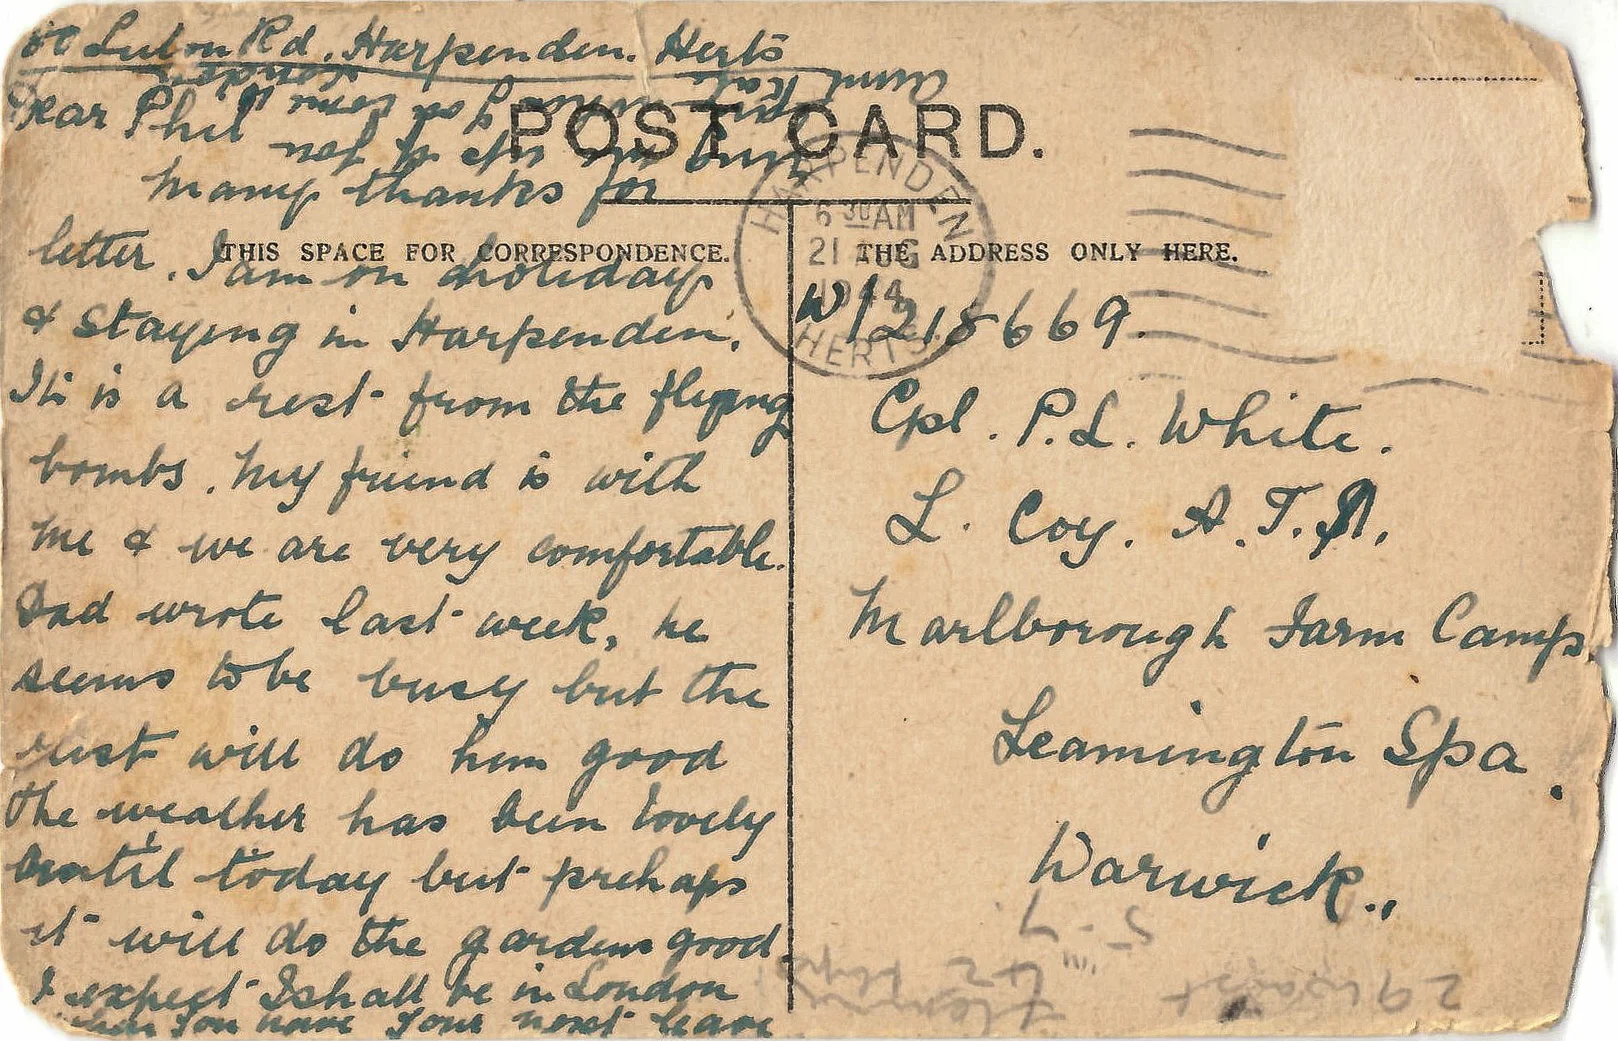 Luton Rd. Harpenden. Herts
Dear Phil
Many thanks for
letter. I am on holiday
& staying in Harpenden.
It is a rest from the flying
bombs. My friend is with
me & we are very comfortable.
Dad wrote last week, he
seems to be busy but the
rest will do him good
The weather has been lovely
until today but prehaps
it will do the gardens good
I expect I shall be in London
when you have your next leave
Aunt Kate
POST CARD.
THIS SPACE FOR CORRESPONDENCE.
THE ADDRESS ONLY HERE.
HARPENDEN
6 30 AM
21 AUG
1944
HERTS.
W/218669.
Cpl. P.L. White.
L. Coy. A.T.S.
Marlborough Farm Camp
Leamington Spa.
Warwick.
29 waist
42 Hips
5-7